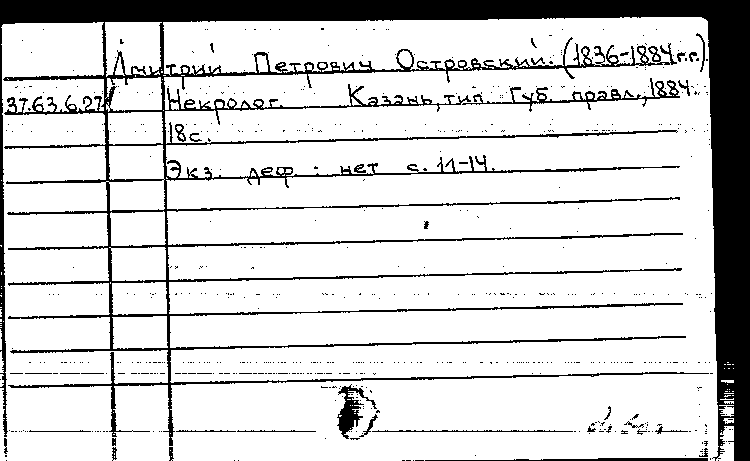 Дмитрий Петрович Островский. (1836-1884 г.г.)
37.63.6.27 Некролог. Казань, тип. Губ. правл., 1884.
18с.
Экз. деф.: нет с. 11-14.